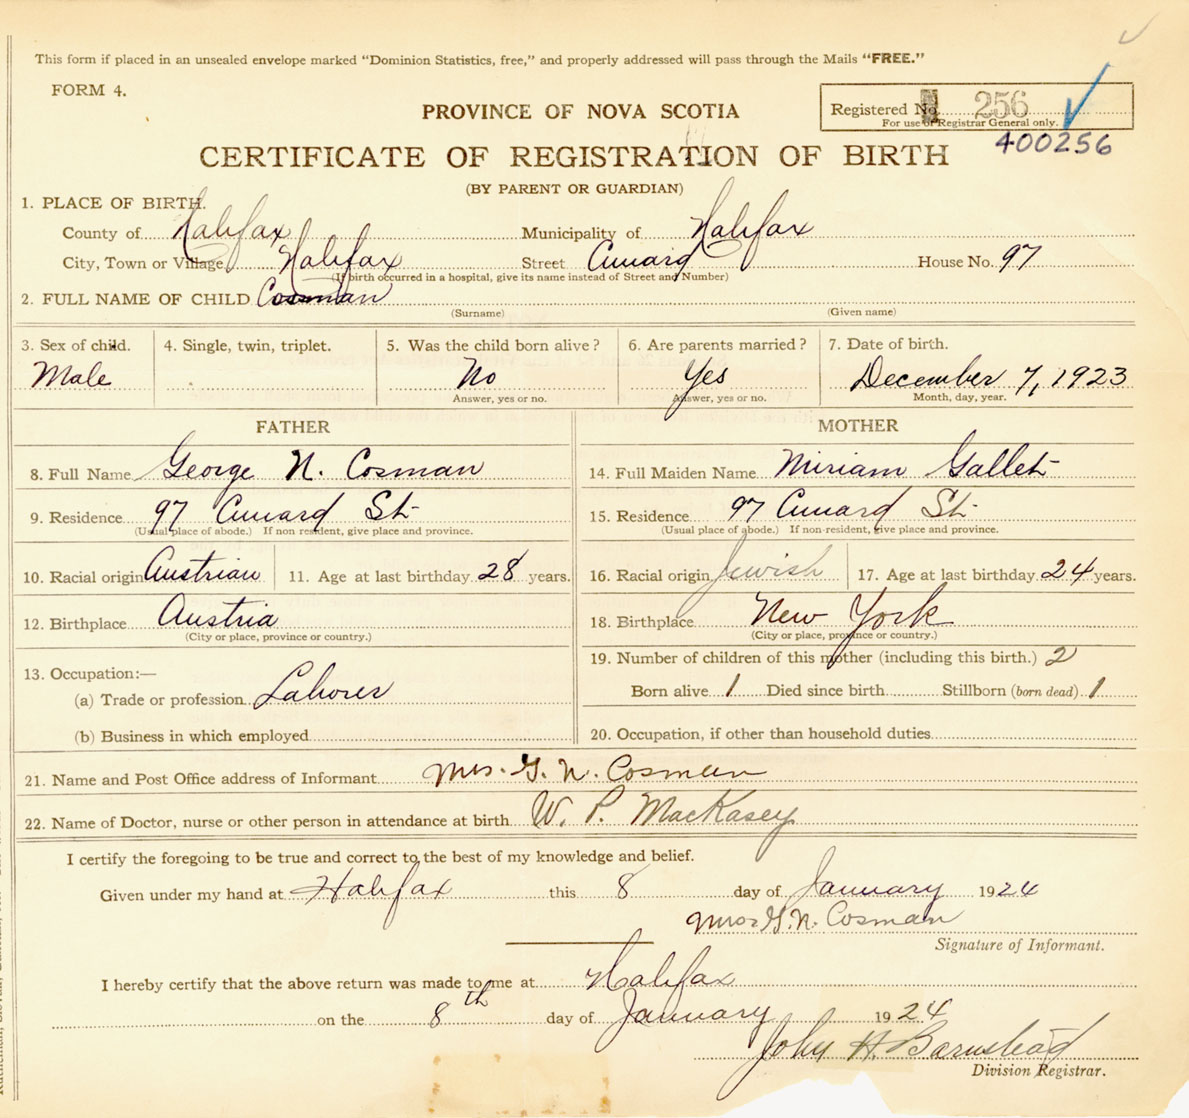 This form if placed in an unsealed envelope marked "Dominion Statistics, free," and properly addressed will pass through the Mails "FREE."
FORM 4.
PROVINCE OF NOVA SCOTIA
Registered No. 256
For use of Registrar General only.
400256
CERTIFICATE OF REGISTRATION OF BIRTH
(BY PARENT OR GUARDIAN)
1. PLACE OF BIRTH.
County of Halifax Municipality of Halifax
City, Town or Village Halifax Street Cunard House No. 97
(If birth occurred in a hospital, give its name instead of Street and Number)
2. FULL NAME OF CHILD Cosman
(Surname) (Given name)
3. Sex of child. 4. Single, twin, triplet. 5. Was the child born alive? 6. Are parents married? 7. Date of birth.
Male No Yes December 7, 1923
Answer, yes or no. Answer, yes or no. Month, day, year.
FATHER MOTHER
8. Full Name George N. Cosman 14. Full Maiden Name Miriam Gallet
9. Residence 97 Cunard St. 15. Residence 97 Cunard St.
(Usual place of abode.) If non resident, give place and province. (Usual place of abode.) If non-resident, give place and province.
10. Racial origin Austrian 11. Age at last birthday 28 years. 16. Racial origin Jewish 17. Age at last birthday 24 years.
12. Birthplace Austria 18. Birthplace New York
(City or place, province or country.) (City or place, province or country.)
13. Occupation:— 19. Number of children of this mother (including this birth.) 2
(a) Trade or profession Laborer Born alive 1 Died since birth Stillborn (born dead) 1
(b) Business in which employed 20. Occupation, if other than household duties
21. Name and Post Office address of Informant Mrs. G. N. Cosman
22. Name of Doctor, nurse or other person in attendance at birth W. P. MacKasey
I certify the foregoing to be true and correct to the best of my knowledge and belief.
Given under my hand at Halifax this 8 day of January 1924
Mrs G. N. Cosman
Signature of Informant.
I hereby certify that the above return was made to me at Halifax
on the 8th day of January 1924
John H. Barnstead
Division Registrar.